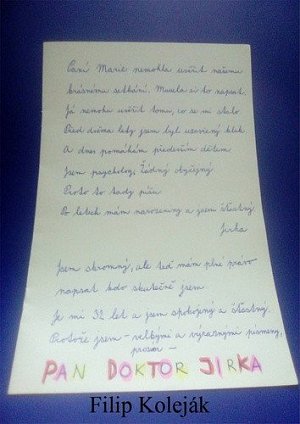 Paní Marie nemohla uvěřit našemu
krásnému setkání. Musela si to napsat.
Já nemohu uvěřit tomu, co se mi stalo
Před dvěma lety jsem byl uzavřený kluk
A dnes pomáhám především dětem
Jsem psycholog, žádný obyčejný
Proto to tady píšu
Po letech mám narozeniny a jsem šťastný
Jirka
Jsem skromný, ale teď mám plné právo
napsat kdo skutečně jsem
Je mi 32 let a jsem spokojený a šťastný
Protože jsem - velkými a výraznými písmeny,
prosím -
PAN DOKTOR JIRKA
Filip Koleják